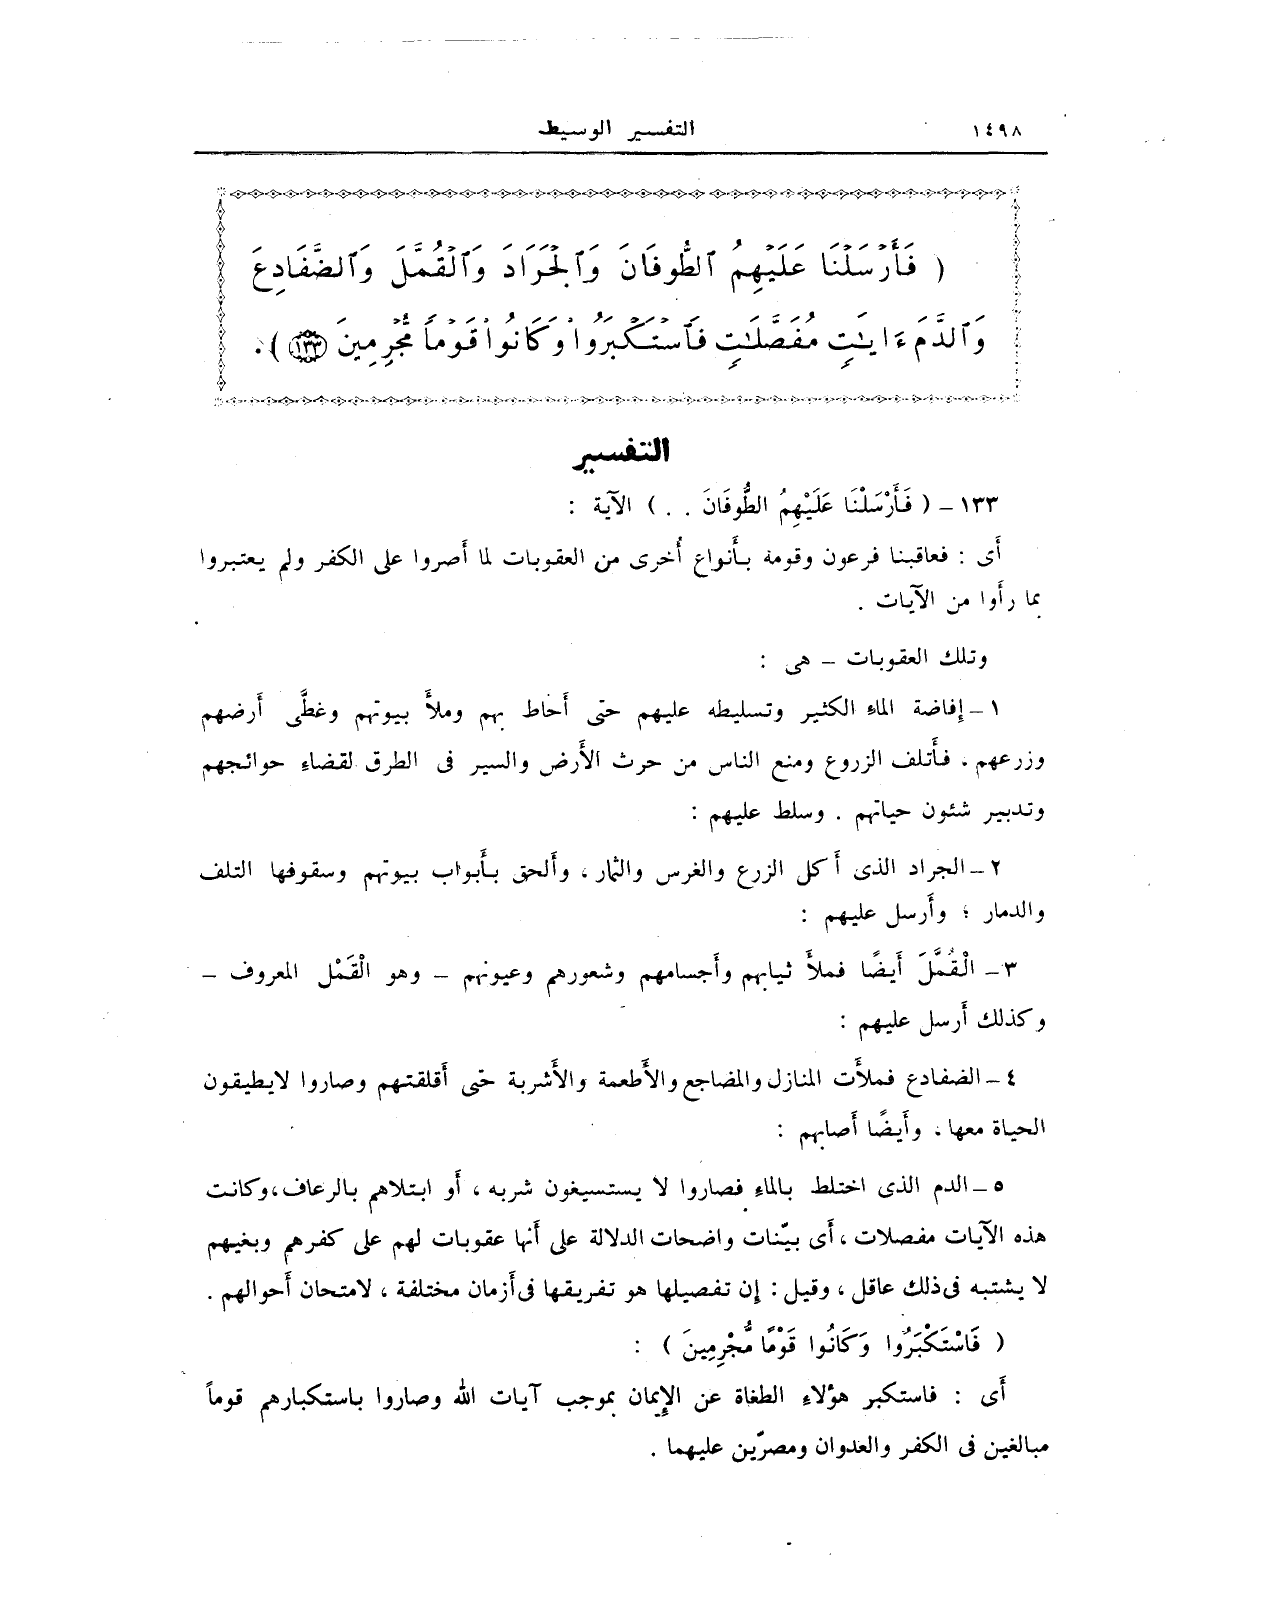 ١٤٩٨ التفسير الوسيط
( فَأَرْسَلْنَا عَلَيْهِمُ ٱلطُّوفَانَ وَٱلْجَرَادَ وَٱلْقُمَّلَ وَٱلضَّفَادِعَ
وَٱلدَّمَ ءَايَٰتٍ مُّفَصَّلَٰتٍ فَٱسْتَكْبَرُوا۟ وَكَانُوا۟ قَوْمًا مُّجْرِمِينَ ١٣٣ ) .
التفسير
١٣٣ – ( فَأَرْسَلْنَا عَلَيْهِمُ الطُّوفَانَ . . ) الآية :
أَى : فعاقبنا فرعون وقومه بأَنواع أُخرى من العقوبات لما أَصروا على الكفر ولم يعتبروا
بما رأَوا من الآيات .
وتلك العقوبات – هى :
١ – إفاضة الماء الكثير وتسليطه عليهم حتى أَحاط بهم وملأَ بيوتهم وغطَّى أَرضهم
وزرعهم ، فأَتلف الزروع ومنع الناس من حرث الأَرض والسير فى الطرق لقضاء حوائجهم
وتدبير شئون حياتهم . وسلط عليهم :
٢ – الجراد الذى أَكل الزرع والغرس والثمار ، وأَلحق بأَبواب بيوتهم وسقوفها التلف
والدمار ؛ وأَرسل عليهم :
٣ – الْقُمَّلَ أَيضًا فملأَ ثيابهم وأَجسامهم وشعورهم وعيونهم – وهو الْقَمْل المعروف –
وكذلك أَرسل عليهم :
٤ – الضفادع فملأَت المنازل والمضاجع والأَطعمة والأَشربة حتى أَقلقتهم وصاروا لايطيقون
الحياة معها ، وأَيضًا أَصابهم :
٥ – الدم الذى اختلط بالماء فصاروا لا يستسيغون شربه ، أَو ابتلاهم بالرعاف ، وكانت
هذه الآيات مفصلات ، أَى بيّنات واضحات الدلالة على أَنها عقوبات لهم على كفرهم وبغيهم
لا يشتبه فى ذلك عاقل ، وقيل : إِن تفصيلها هو تفريقها فى أَزمان مختلفة ، لامتحان أَحوالهم .
( فَاسْتَكْبَرُوا وَكَانُوا قَوْمًا مُّجْرِمِينَ ) :
أَى : فاستكبر هؤلاء الطغاة عن الإِيمان بموجب آيات الله وصاروا باستكبارهم قوماً
مبالغين فى الكفر والعدوان ومصرّين عليهما .